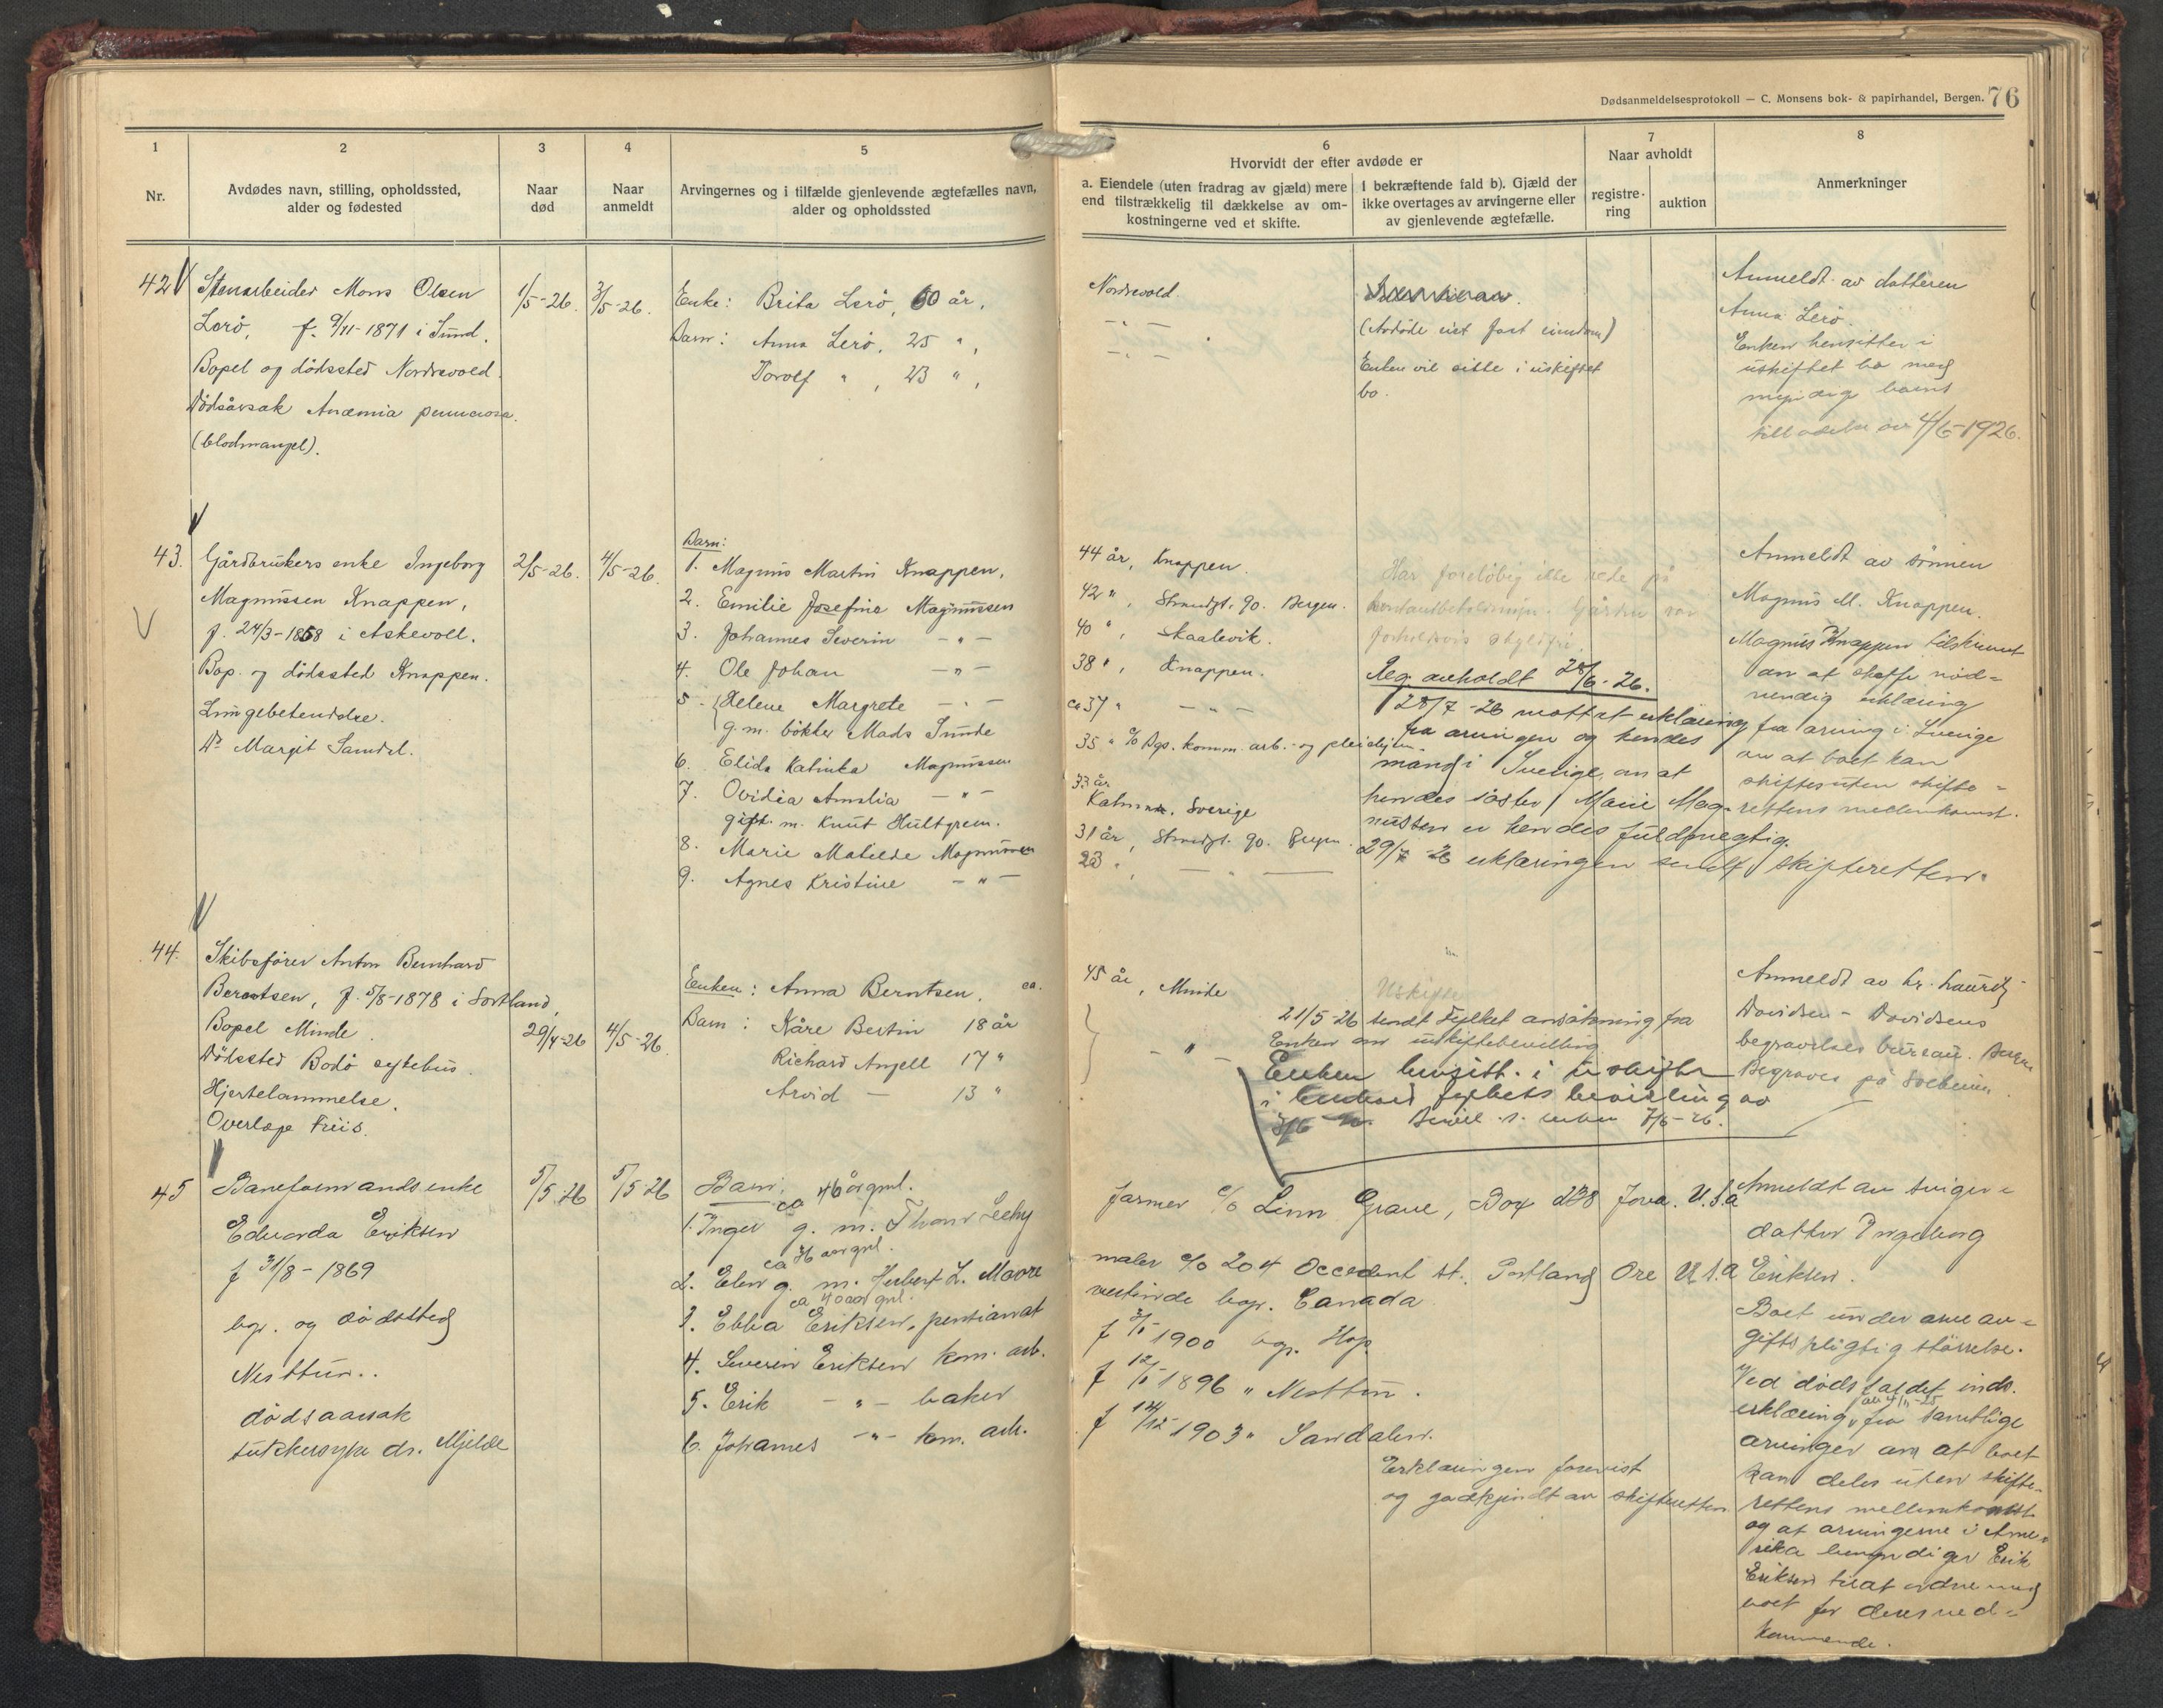 Dødsanmeldelsesprotokoll — C. Monsens bok- & papirhandel, Bergen. 76
1
2
3
4
5
6
7
8
Nr.
Avdødes navn, stilling, opholdssted,
alder og fødested
Naar
død
Naar
anmeldt
Arvingernes og i tilfælde gjenlevende ægtefælles navn,
alder og opholdssted
Hvorvidt der efter avdøde er
a. Eiendele (uten fradrag av gjæld) mere
end tilstrækkelig til dækkelse av om-
kostningerne ved et skifte.
I bekræftende fald b). Gjæld der
ikke overtages av arvingerne eller
av gjenlevende ægtefælle.
Naar avholdt
registre-
ring
auktion
Anmerkninger
42
Stenarbeider Mons Olsen
Lerö, f. 9/11-1871 i Sund.
Bopel og dödssted Nordrevold.
Dödsårsak Anæmia
(blodmangel).
1/5-26.
3/5-26.
Enke: Brita Lerö, 60 år,
Barn: Anna Lerö, 25 ",
Torolf ", 23 ",
Nordrevold.
- " -
- " -
(Avdöde eiet fast eiendom)
Enken vil sitte i uskiftet
bo.
Anmeldt av datteren
Anna Lerö.
Enken hensitter i
uskiftet bo med
myndige barns
tilladelse av 4/6-1926.
43.
Gårdbrukers enke Ingeborg
Magnussen Knappen,
f. 24/3-1858 i Askevoll.
Bop. og dödssted Knappen.
Lungebetendelse.
Dr Margit Sandal.
2/5-26.
4/5-26.
Barn:
1. Magnus Martin Knappen,
2. Emilie Josefine Magnussen
3. Johannes Severin - " -
4. Ole Johan - " -
5. Helene Margrete - " -
g. m. bökker Mads Sunde
6. Elida Katinka Magnussen
7. Ovidia Amalia - " -
gift m. Knut Hultgren.
8. Marie Matilde Magnussen
9. Agnes Kristine - " -
44 år, Knappen.
42 ", Strandgt. 90. Bergen.
40 ", Skaalevik.
38 ", Knappen.
ca 37 " - " -
35 " c/o Bgs. komm. arb.- og pleiehjem.
33 år
Kalmar, Sverige
31 år, Strandgt. 90. Bergen.
23 ", - " -
Har foreløbig ikke rede på
kontantbeholdningen. Gården var
forholdsvis skyldfri.
Reg. avholdt 28/6-26.
28/7-26 mottat erklæring
fra arvingen og hendes
mand i Sverige, om at
hendes søster Marie Mag-
nussen er hendes fuldmegtig.
29/7-26 erklæringen sendt skifteretten.
Anmeldt av sönnen
Magnus M. Knappen.
Magnus Knappen tilskrevet
om at skaffe nød-
vendig erklæring
fra arving i Sverige
om at boet kan
skiftes uten skifte-
rettens mellemkomst.
44.
Skibsförer Anton Bernhard
Berntsen, f. 5/8-1878 i Sortland,
Bopel Minde.
Dödssted Bodö sykehus.
Hjertelammelse.
Overlæge Friis.
29/4-26
4/5-26.
Enken: Anna Berntsen, ca.
Barn: Kåre Bertin 18 år
Richard Angell 17 "
Arvid - 13 "
45 år, Minde
- " -
Uskifte
21/5-26 sendt Fylket ansökning fra
Enken om uskiftebevilling
Enken hensitt. i uskifte
i henhold fylkets bevilling av
3/6-26. Bevill. s. enken 7/6-26.
Anmeldt av hr. Lauritz
Davidsen - Davidsens
begravelses bureau. Bergen
Begraves på Solheim.
45
Baneformandsenke
Edvarda Eriksen
f 31/8-1869
bop. og dødssted
Nesttun..
dødsaarsak
sukkersyke dr. Mjelde
5/5-26
5/5-26
Barn:
ca 46 år gml.
1. Inger g. m. Thom
ca 36 aar gml.
2. Elen g. m. Herbert L. Moore
ca 40 aar gml.
3. Ebba Eriksen, pensionat
4. Severin Eriksen kom. arb.
5. Erik - " - baker
6. Johannes - " - kom. arb.
farmer c/o Linn Grave, Box Iova. U.S.a
maler c/o 204 Occedent st. Portland Ore U.S.a
vertinde bop. Canada
1900 bop. Hop
1896 " Nesttun.
f 14/12 1903 " Sandalen.
Erklæringen forevist
og godkjendt av skifteretten
Anmeldt av sviger-
datter Ingeborg
Eriksen.
Boet under arveav-
giftspligtig størrelse.
Ved dødsfaldet inds.
erklæring fra samtlige
arvinger om at boet
kan deles uten skifte-
rettens mellemkomst
og at arvingerne i Ame-
rika bemyndiger Erik
Eriksen til at ordne med
boet for deres ved-
kommende.